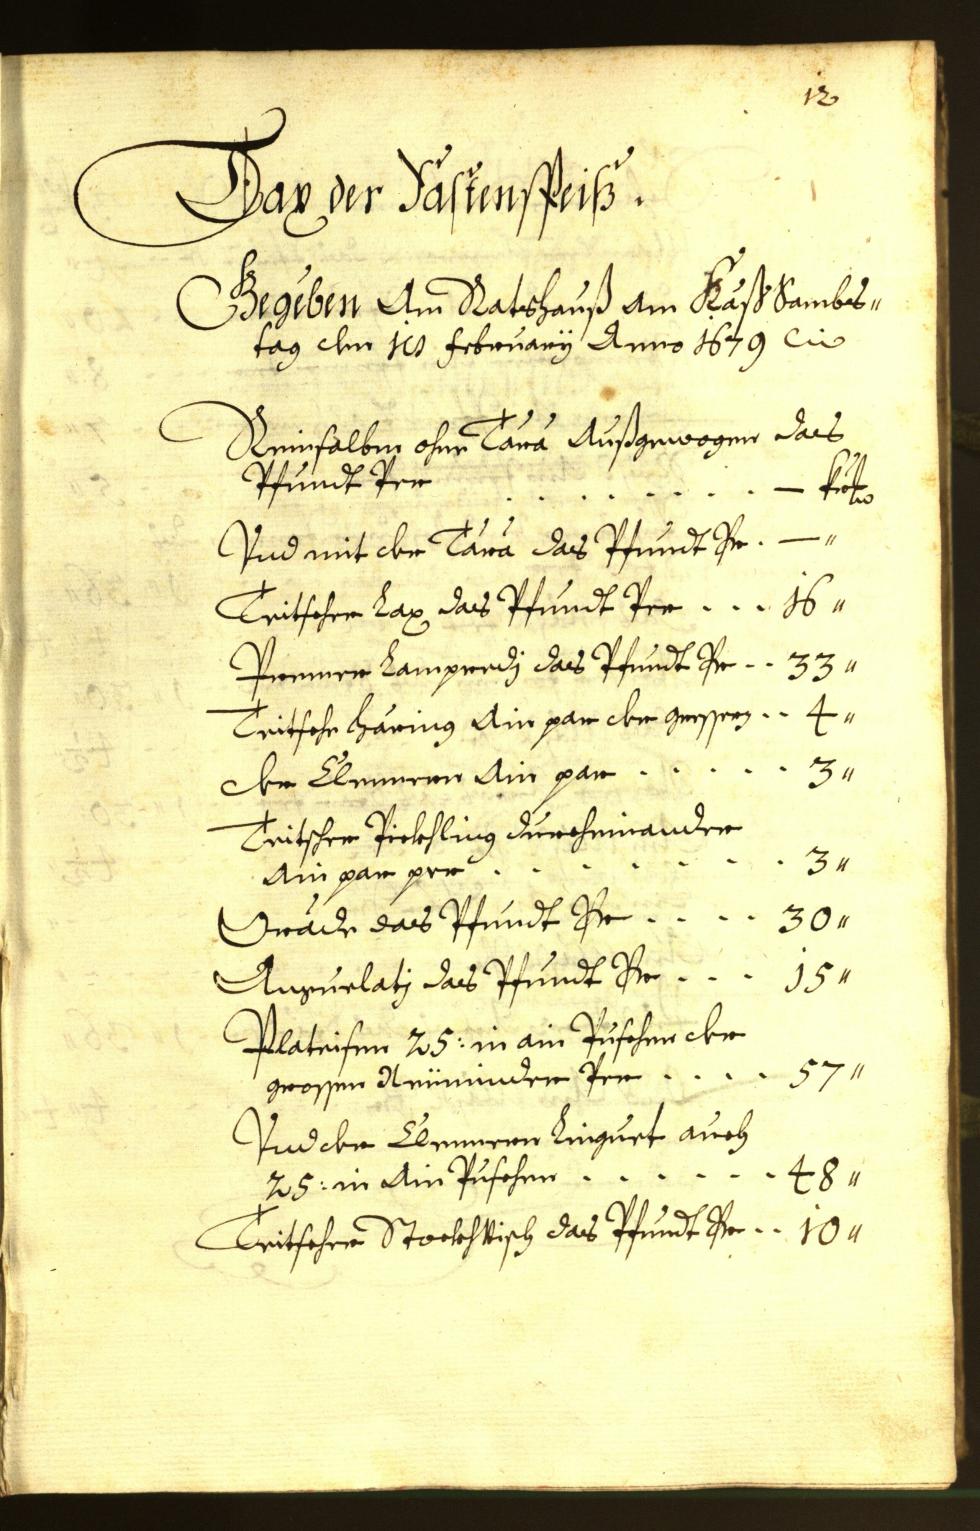 12
Tax der Fastenspeiß.
Gegeben Am Ratshauß am Käß Sambes„
tag den 18 february Anno 1679
Reinfalben ohne Tara Außgewogen das
Pfundt Per . . . . . . . . —
Und mit der Tara das Pfundt Per . — „
Teitscher Lax das Pfundt Per . . . 16 „
Premer Lampredj das Pfundt Per . . 33 „
Teitsche häring Ain par der grossen . . 4 „
der Clennern Ain par . . . . . 3 „
Teitscher Pickhling durcheinander
Ain par per . . . . . . . 3 „
das Pfundt Per . . . . 30 „
das Pfundt Per . . . 15 „
Plateisen 25: in ain Puschen der
grossen Per . . . . 57 „
Und der Clennern auch
25: in Ain Puschen . . . . . . 48 „
Teitscher Stockhfisch das Pfundt Per . . 10 „